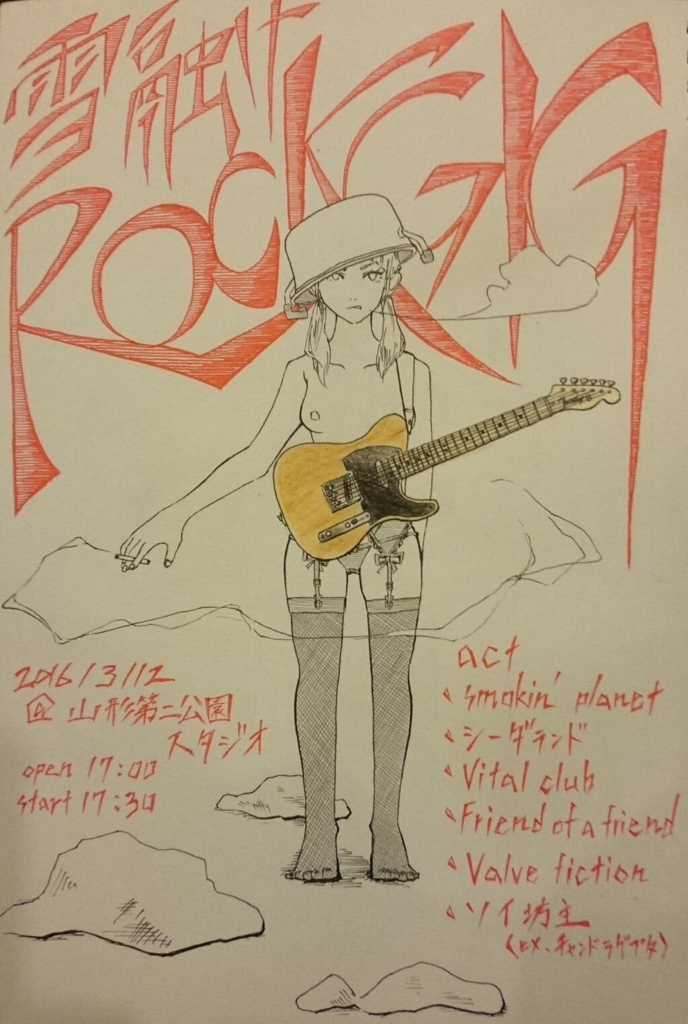 雪融け
ROCK GIG
2016/3/12
@ 山形第二公園
スタジオ
open 17:00
start 17:30
act
・smokin' planet
・シーダランド
・Vital club
・Friend of a friend
・Valve fiction
・ソイ坊主
(ex.チャンドラグプタ)